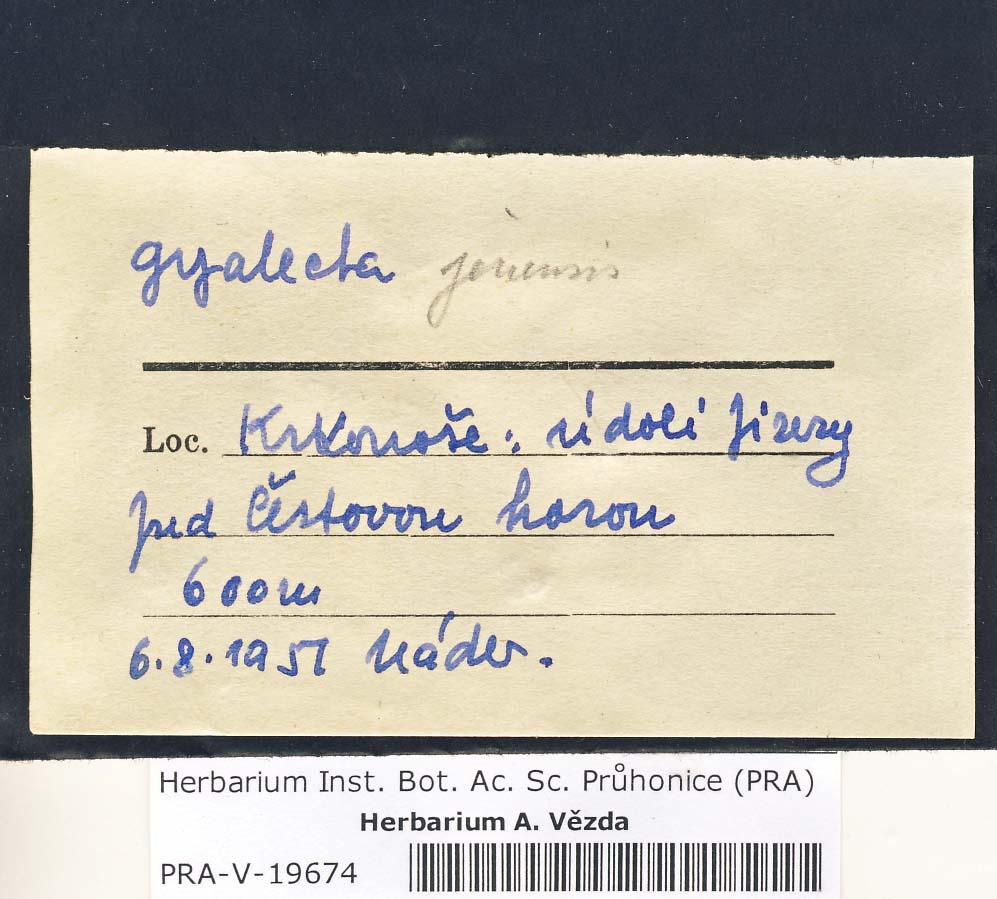 Gyalecta jenensis
Loc. Krkonoše: údolí Jizery
pod Čertovou horou
600m
6.8.1957 Nádv.
Herbarium Inst. Bot. Ac. Sc. Průhonice (PRA)
Herbarium A. Vězda
PRA-V-19674